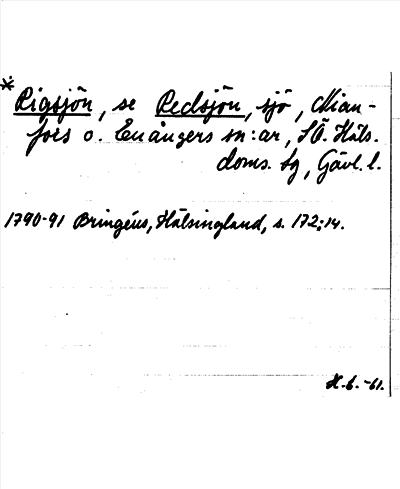 * Rigsjön, se Redsjön, sjö, Njan-
fors o. Enångers sn:ar, SÖ. Häls.
doms. sg, Gävl. l.
1790-91 Bringéus, Hälsingland, s. 172; 14.
H.b. -61.